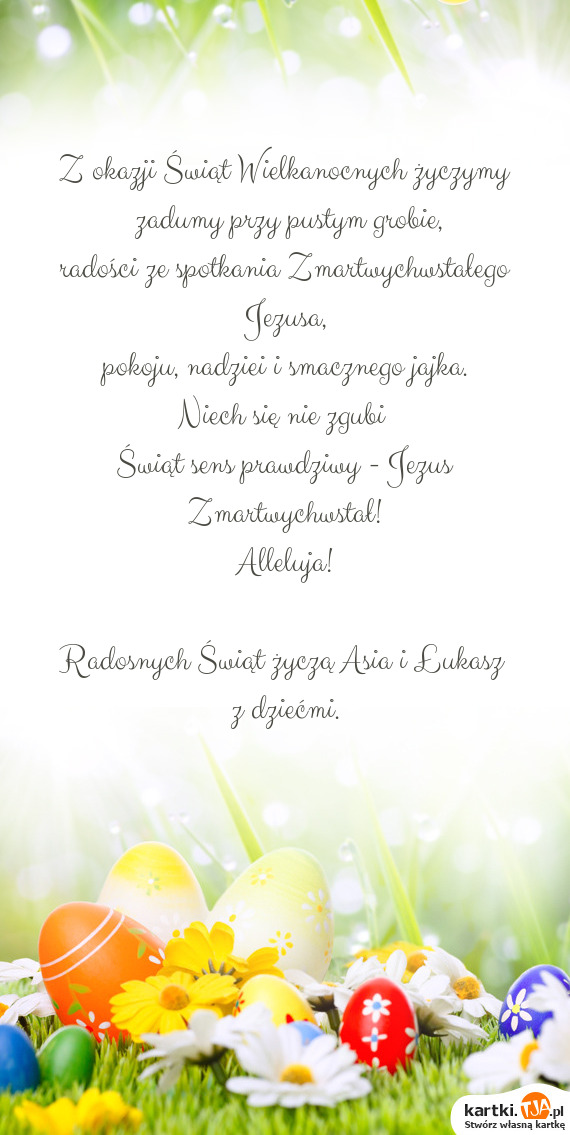 Z okazji Świąt Wielkanocnych życzymy
zadumy przy pustym grobie,
radości ze spotkania Zmartwychwstałego
Jezusa,
pokoju, nadziei i smacznego jajka.
Niech się nie zgubi
Świąt sens prawdziwy - Jezus
Zmartwychwstał!
Alleluja!
Radosnych Świąt życzą Asia i Łukasz
z dziećmi.
kartki.TJA.pl
Stwórz własną kartkę